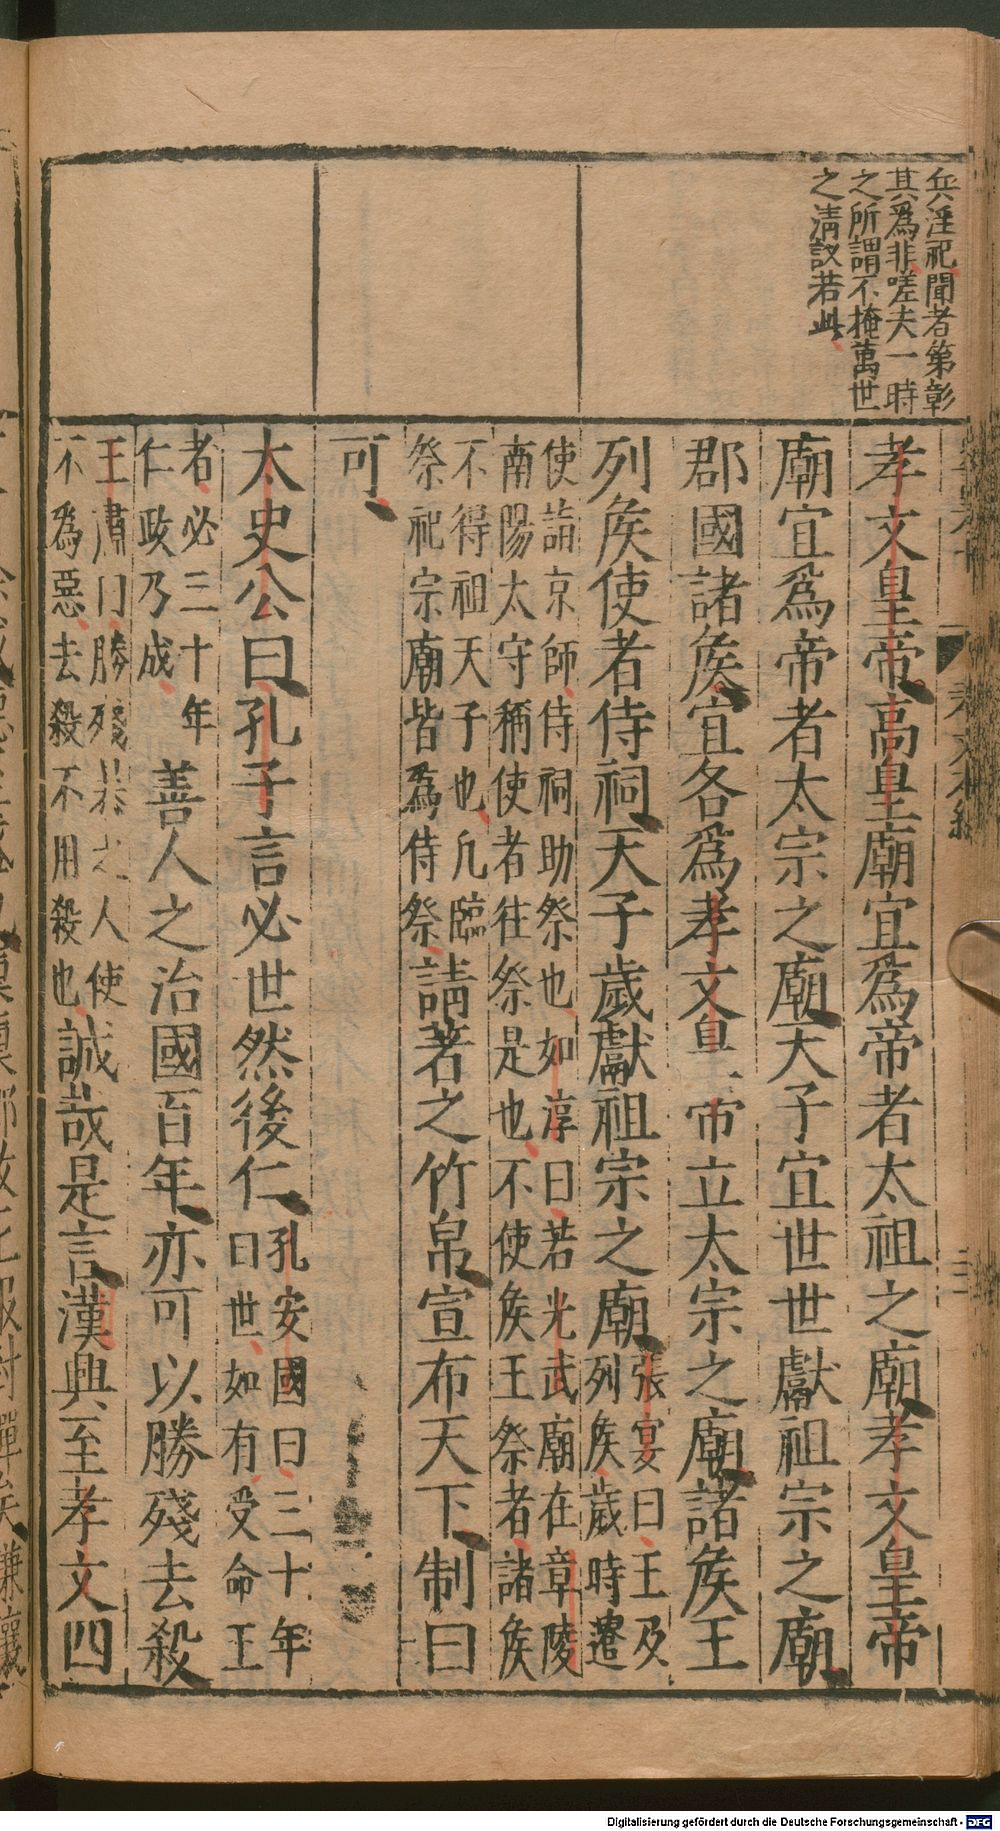 兵淫祀聞者第彰
其爲非嗟夫一時
之所謂不掩萬世
之清議若此
孝文皇帝高皇廟宜爲帝者太祖之廟孝文皇帝
廟宜爲帝者太宗之廟天子宜世世獻祖宗之廟
郡國諸侯宜各爲孝文皇帝立太宗之廟諸侯王
列侯使者侍祠天子歲獻祖宗之廟張宴曰王及列侯歲時遣
使詣京師侍祠助祭也如淳曰若光武廟在章陵
南陽太守稱使者往祭是也不使侯王祭者諸侯
不得祖天子也凡臨
祭祀宗廟皆爲侍祭請著之竹帛宣布天下制曰
可
太史公曰孔子言必世然後仁孔安國曰三十年曰世如有受命王
者必三十年
仁政乃成善人之治國百年亦可以勝殘去殺
王肅曰勝殘暴之人使
不爲惡去殺不用殺也誠哉是言漢興至孝文四
Digitalisierung gefördert durch die Deutsche Forschungsgemeinschaft - DFG